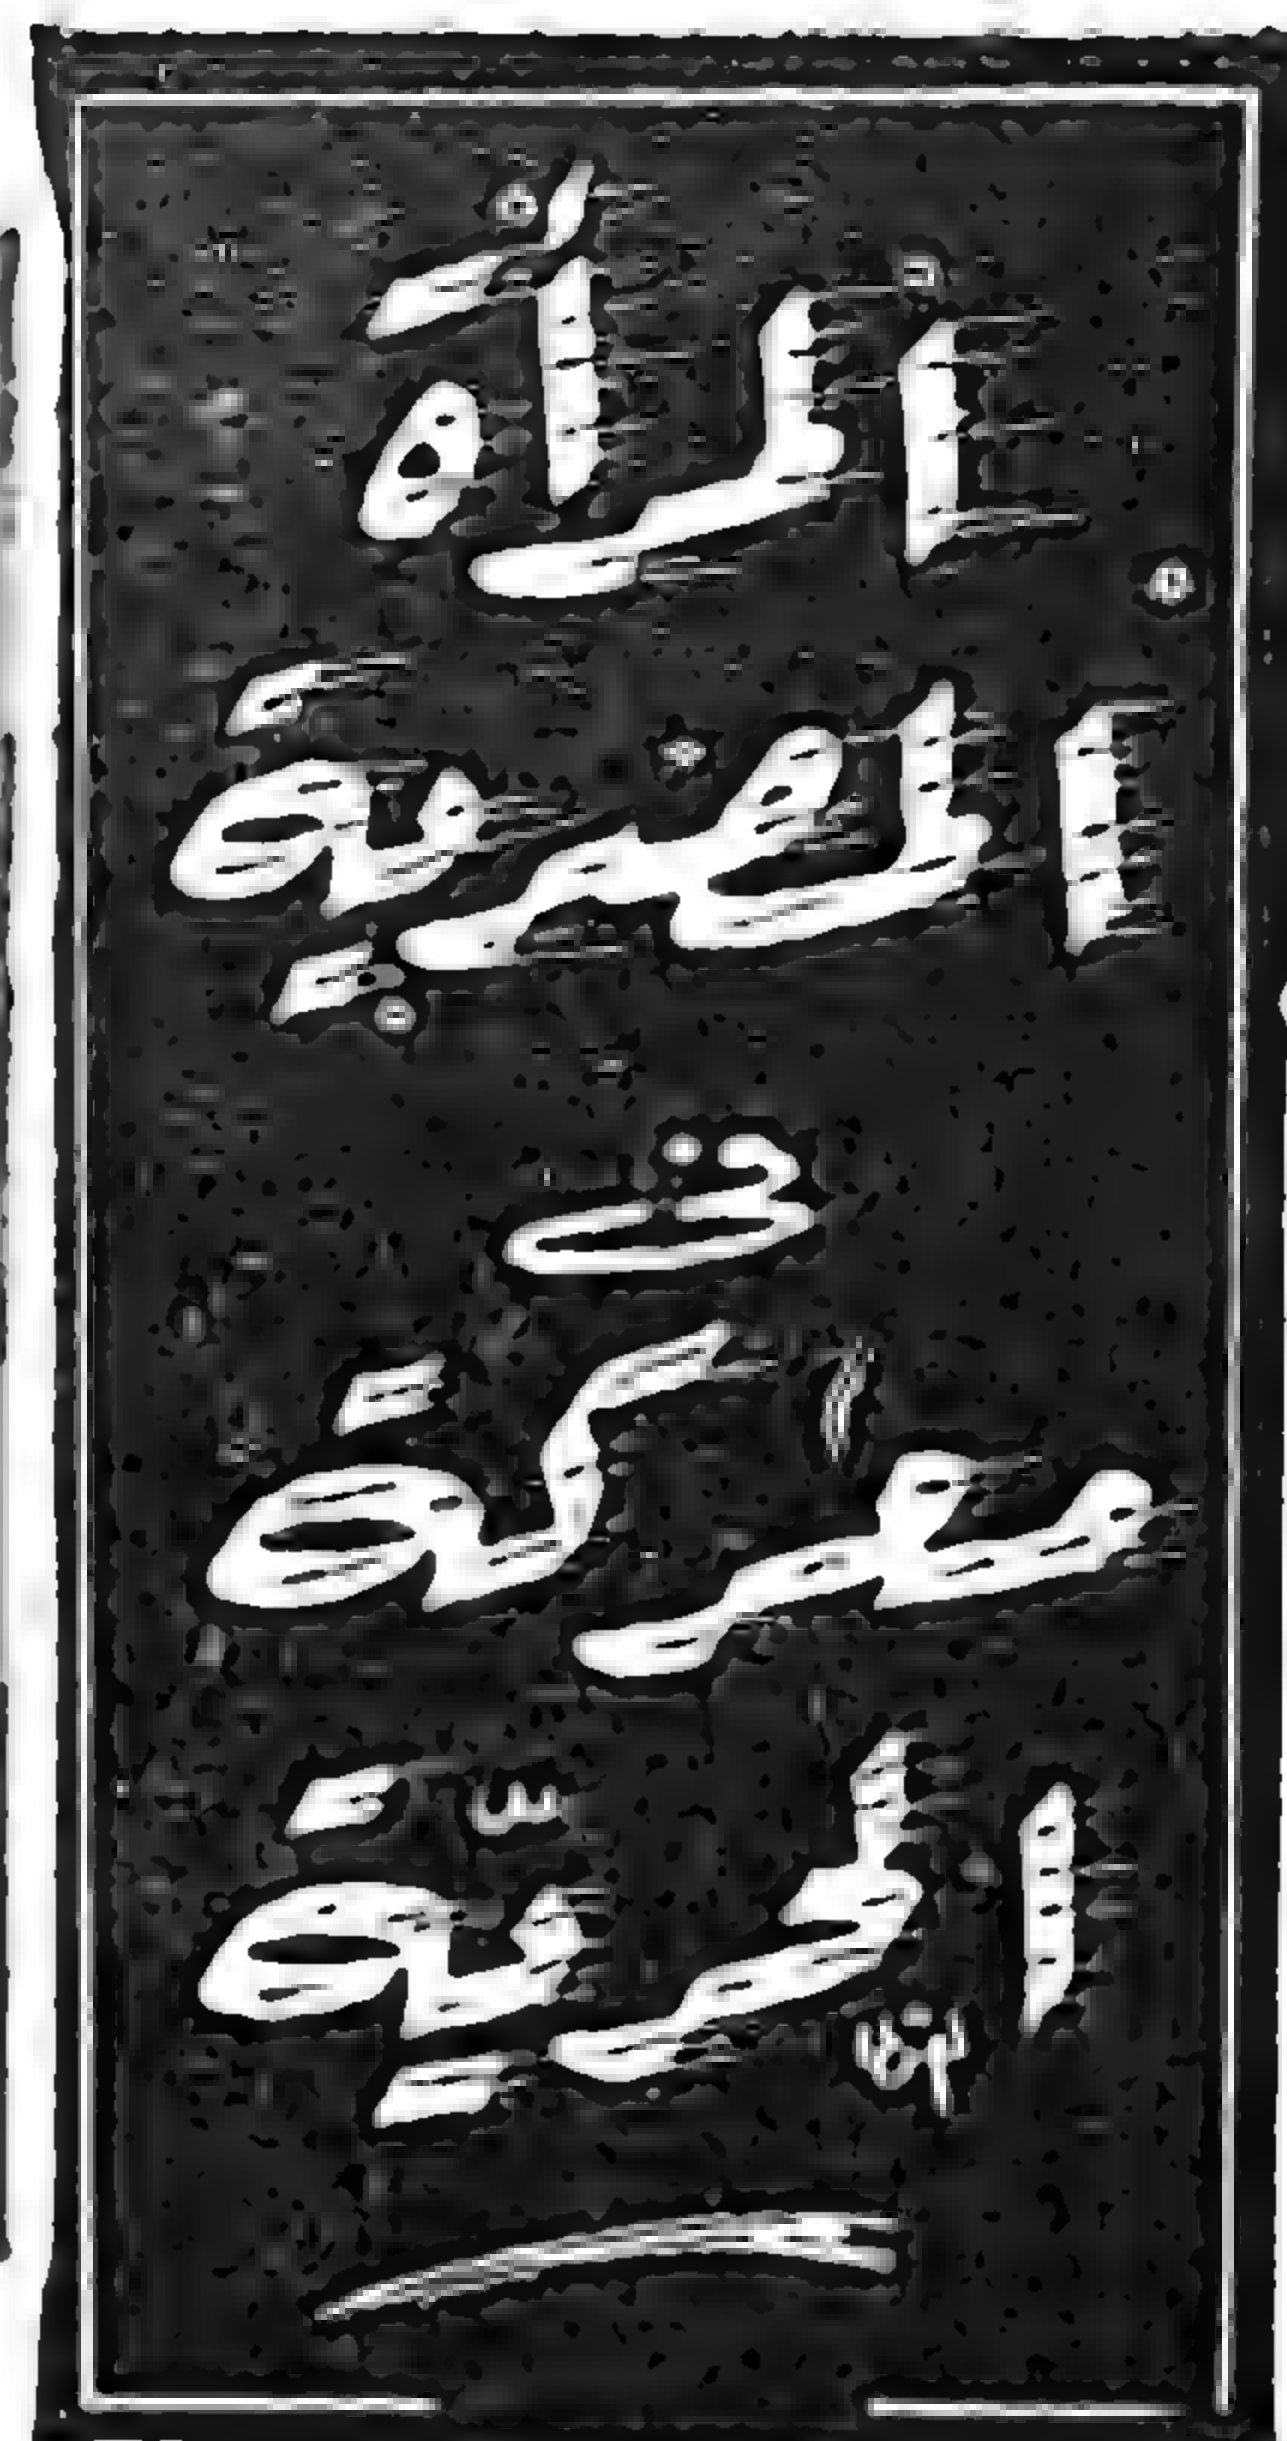 المرأة
العربية
في
معركة
الحرية